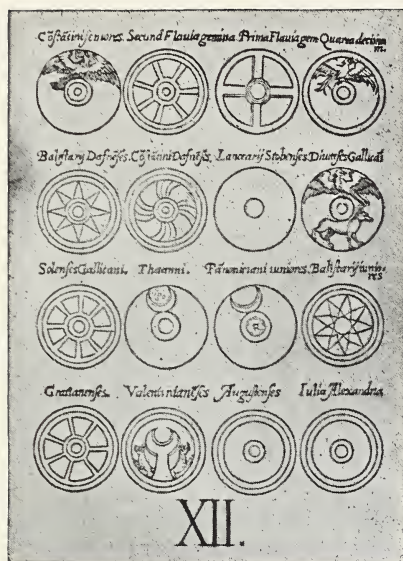 Cõstãtini seniores. Secund Flauia gemina Prima Flauia gem Quarta decima
Balistarij Dafnẽses. Cõstãtini Dafnẽses. Lancearij Stobenses. Dhutẽses Gallicãi
Solenses Gallicani. Thaanni. Pãnoniciani iuniores. Balistarij iunio
res
Gratianenses. Valentinianẽses Augustenses Iulia Alexandria
XII.